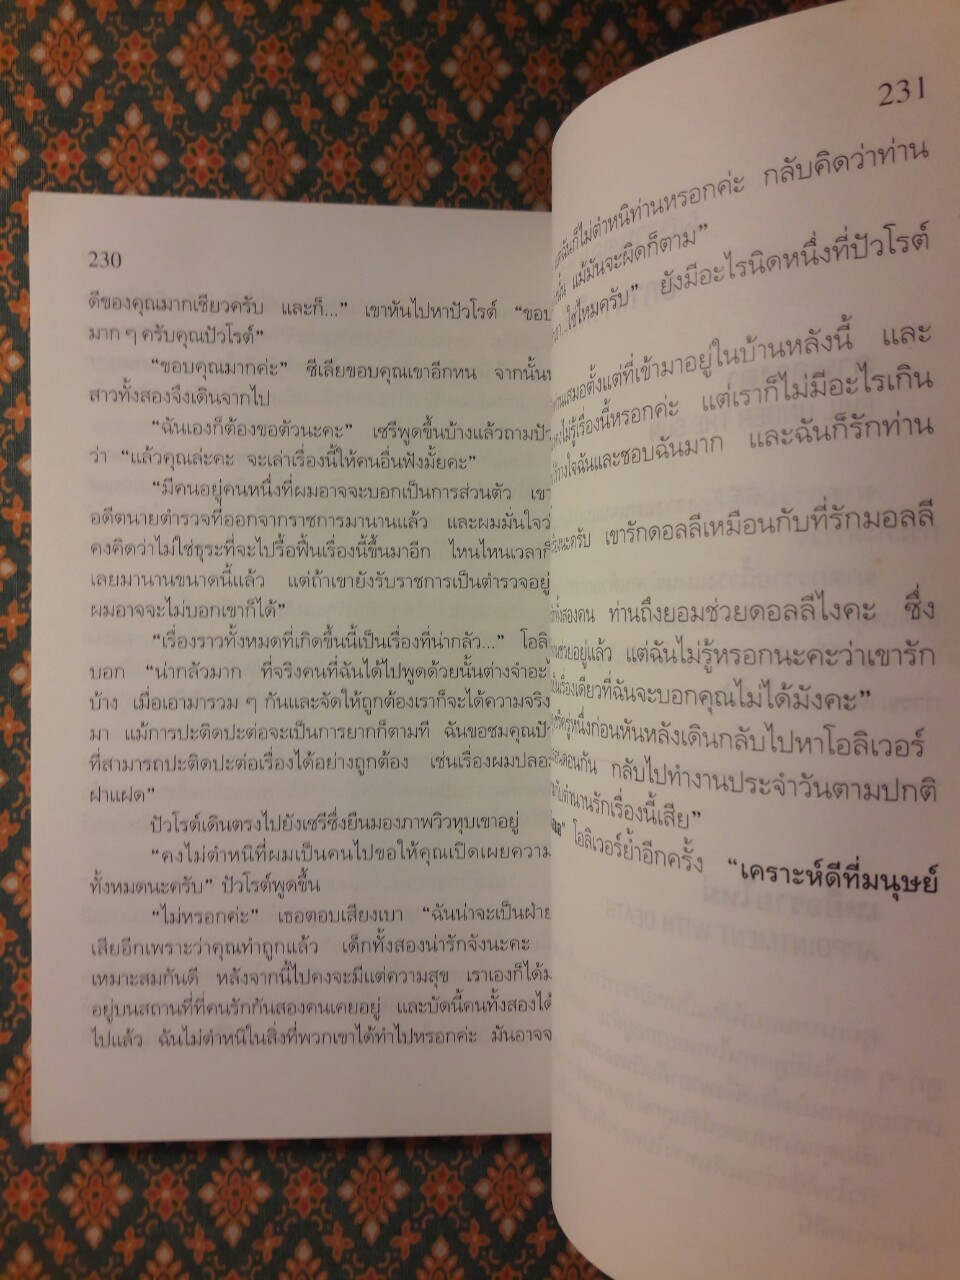 230
ดีของคุณมากเชียวครับ และก็...” เขาหันไปหาปัวโรต์ “ขอบ
มาก ๆ ครับคุณปัวโรต์”
“ขอบคุณมากค่ะ” ซีเลียขอบคุณเขาอีกหน จากนั้น
สาวทั้งสองจึงเดินจากไป
“ฉันเองก็ต้องขอตัวนะคะ” เซรีพูดขึ้นบ้างแล้วถามปัว
ว่า “แล้วคุณล่ะคะ จะเล่าเรื่องนี้ให้คนอื่นฟังมั้ยคะ”
“มีคนอยู่คนหนึ่งที่ผมอาจจะบอกเป็นการส่วนตัว เขา
อดีตนายตำรวจที่ออกจากราชการมานานแล้ว และผมมั่นใจว่
คงคิดว่าไม่ใช่ธุระที่จะไปรื้อฟื้นเรื่องนี้ขึ้นมาอีก ไหนไหนเวลาก็
เลยมานานขนาดนี้แล้ว แต่ถ้าเขายังรับราชการเป็นตำรวจอยู่
ผมอาจจะไม่บอกเขาก็ได้”
“เรื่องราวทั้งหมดที่เกิดขึ้นนี้เป็นเรื่องที่น่ากลัว...” โอลิ
บอก “น่ากลัวมาก ที่จริงคนที่ฉันได้ไปพูดด้วยนั้นต่างจำอะไ
บ้าง เมื่อเอามารวม ๆ กันและจัดให้ถูกต้องเราก็จะได้ความจริง
มา แม้การปะติดปะต่อจะเป็นการยากก็ตามที ฉันขอชมคุณปัว
ที่สามารถปะติดปะต่อเรื่องได้อย่างถูกต้อง เช่นเรื่องผมปลอม
ฝาแฝด”
ปัวโรต์เดินตรงไปยังเซรีซึ่งยืนมองภาพวิวหุบเขาอยู่
“คงไม่ตำหนิที่ผมเป็นคนไปขอให้คุณเปิดเผยความ
ทั้งหมดนะครับ” ปัวโรต์พูดขึ้น
“ไม่หรอกค่ะ” เธอตอบเสียงเบา “ฉันน่าจะเป็นฝ่าย
เสียอีกเพราะว่าคุณทำถูกแล้ว เด็กทั้งสองน่ารักจังนะคะ
เหมาะสมกันดี หลังจากนี้ไปคงจะมีแต่ความสุข เราเองก็ได้ม
อยู่บนสถานที่ที่คนรักกันสองคนเคยอยู่ และบัดนี้คนทั้งสองได้
ไปแล้ว ฉันไม่ตำหนิในสิ่งที่พวกเขาได้ทำไปหรอกค่ะ มันอาจจ
231
ฉันก็ไม่ตำหนิท่านหรอกค่ะ กลับคิดว่าท่าน
แม้มันจะผิดก็ตาม”
ใช่ไหมครับ” ยังมีอะไรนิดหนึ่งที่ปัวโรต์
เสมอตั้งแต่ที่เข้ามาอยู่ในบ้านหลังนี้ และ
ไม่รู้เรื่องนี้หรอกค่ะ แต่เราก็ไม่มีอะไรเกิน
ไว้วางใจฉันและชอบฉันมาก และฉันก็รักท่าน
นะครับ เขารักดอลลีเหมือนกับที่รักมอลลี
ทั้งสองคน ท่านถึงยอมช่วยดอลลีไงคะ ซึ่ง
ช่วยอยู่แล้ว แต่ฉันไม่รู้หรอกนะคะว่าเขารัก
เรื่องเดียวที่ฉันจะบอกคุณไม่ได้มังคะ”
ครู่หนึ่งก่อนหันหลังเดินกลับไปหาโอลิเวอร์
ลอนดอนกัน กลับไปทำงานประจำวันตามปกติ
กับตำนานรักเรื่องนี้เสีย”
โอลิเวอร์ย้ำอีกครั้ง “เคราะห์ดีที่มนุษย์